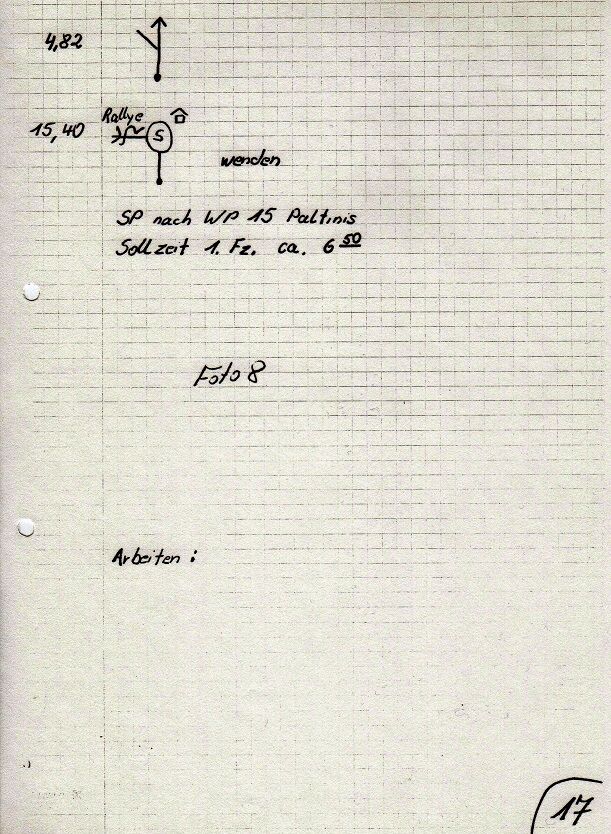 4,82
Rallye
15,40 S
wenden
SP nach WP 15 Paltinis
Sollzeit 1. Fz. ca. 6 50
Foto 8
Arbeiten :
17